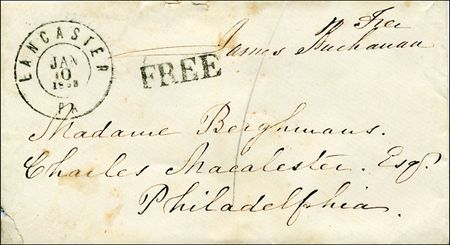 Free
James Buchanan
LANCASTER
JAN
10
PA
FREE
Madame Berghmans.
Charles Macalester. Esqr.
Philadelphia.